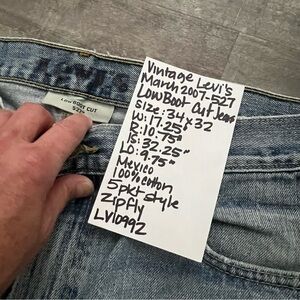 LOW BOOT CUT
527
Vintage Levi's
March 2007-527
LowBoot Cut Jeans
Size: 34x32
W: 17.25"
R: 10.75"
Is: 32.25"
LO: 9.75"
Mexico
100% cotton
5pkt style
Zip Fly
LV10992